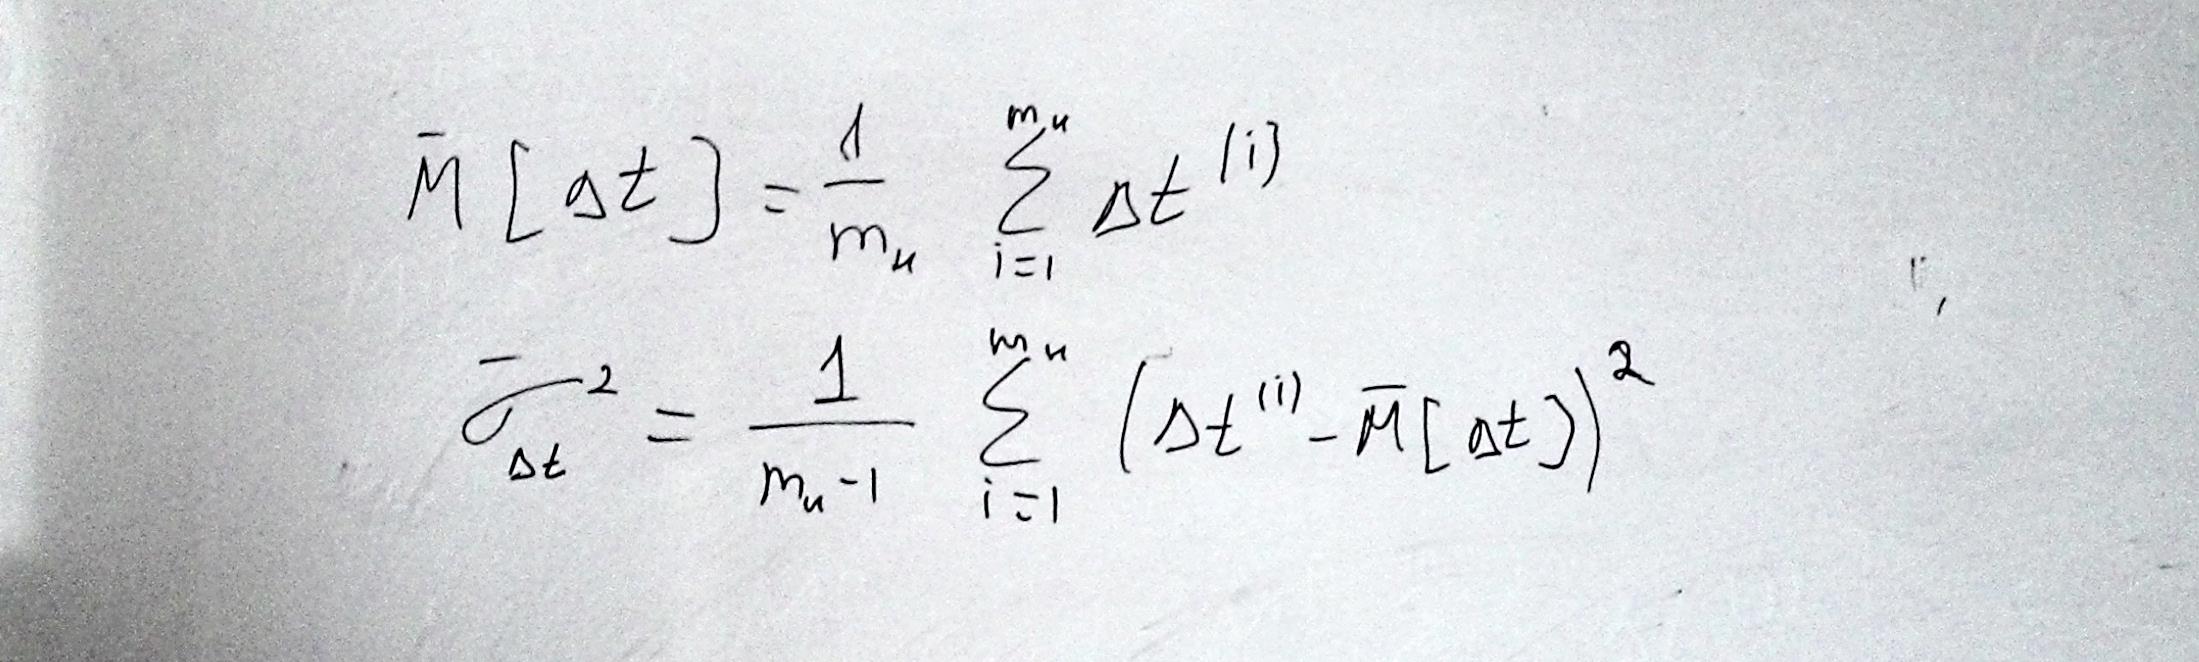 M̄ [Δt] = 1/mᵤ ∑_{i=1}^{mᵤ} Δt^{(i)}
σ̄²_{Δt} = 1/(mᵤ-1) ∑_{i=1}^{mᵤ} (Δt^{(i)} - M̄[Δt])²